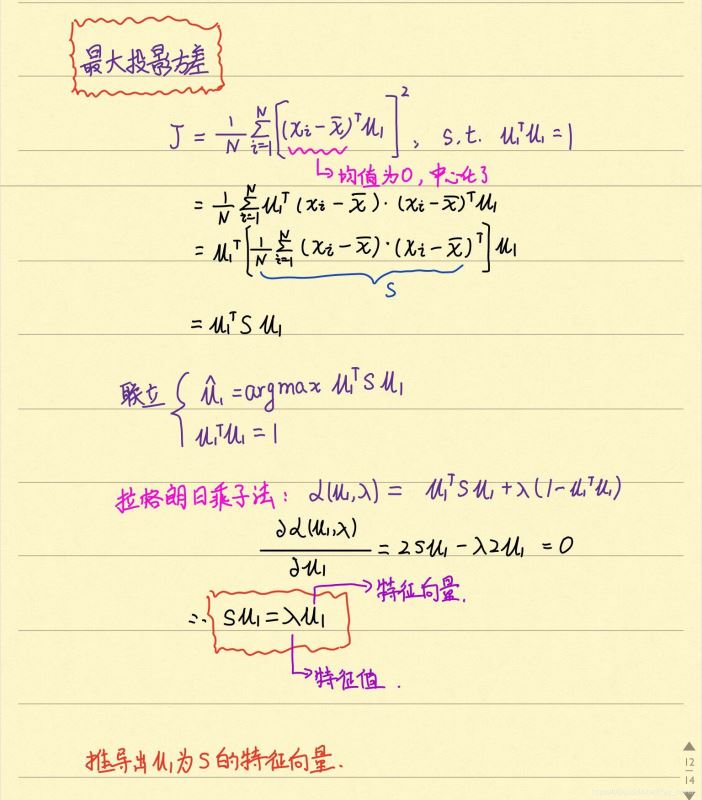 最大投影方差
J = 1/N ∑_{i=1}^{N} [(x_i - x̄)^T u_1]^2, s.t. u_1^T u_1 = 1
均值为0, 中心化了
= 1/N ∑_{i=1}^{N} u_1^T (x_i - x̄)·(x_i - x̄)^T u_1
= u_1^T [1/N ∑_{i=1}^{N} (x_i - x̄)·(x_i - x̄)^T] u_1
S
= u_1^T S u_1
联立 { û_1 = argmax u_1^T S u_1
u_1^T u_1 = 1
拉格朗日乘子法: L(u_1, λ) = u_1^T S u_1 + λ(1 - u_1^T u_1)
∂L(u_1, λ)/∂u_1 = 2Su_1 - λ2u_1 = 0
特征向量.
∴ Su_1 = λu_1
特征值.
推导出 u_1 为 S 的特征向量.
12
14